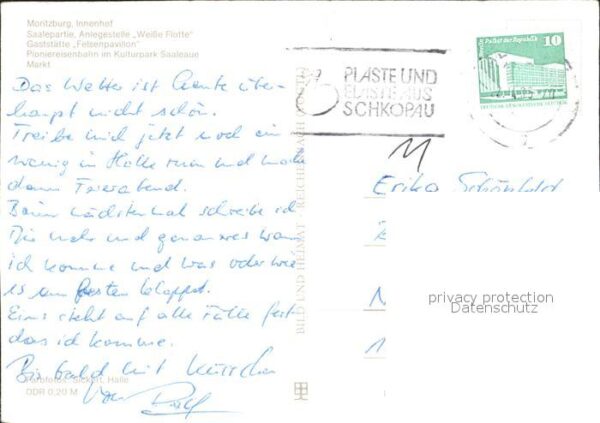 Moritzburg, Innenhof
Saalepartie, Anlegestelle „Weiße Flotte"
Gaststätte „Felsenpavillon"
Pioniereisenbahn im Kulturpark Saaleaue
Markt
Das Wetter ist heute über-
haupt nicht schön.
Treibe mich jetzt noch ein
wenig in Halle rum und mache
dann Feierabend.
Beim nächstenmal schreibe ich
Dir mehr und genau wann
ich komme und was oder wie
es am besten klappt.
Eins steht auf alle Fälle fest
das ich komme.
Bis bald mit Küsschen
von Rolf
Farbfotos: Sickert, Halle
DDR 0,20 M
BILD UND HEIMAT REICHENBACH
PLASTE UND
ELASTE AUS
SCHKOPAU
Berlin, Palast der Republik
10
DEUTSCHE DEMOKRATISCHE REPUBLIK
Erika Schönfeld
privacy protection
Datenschutz